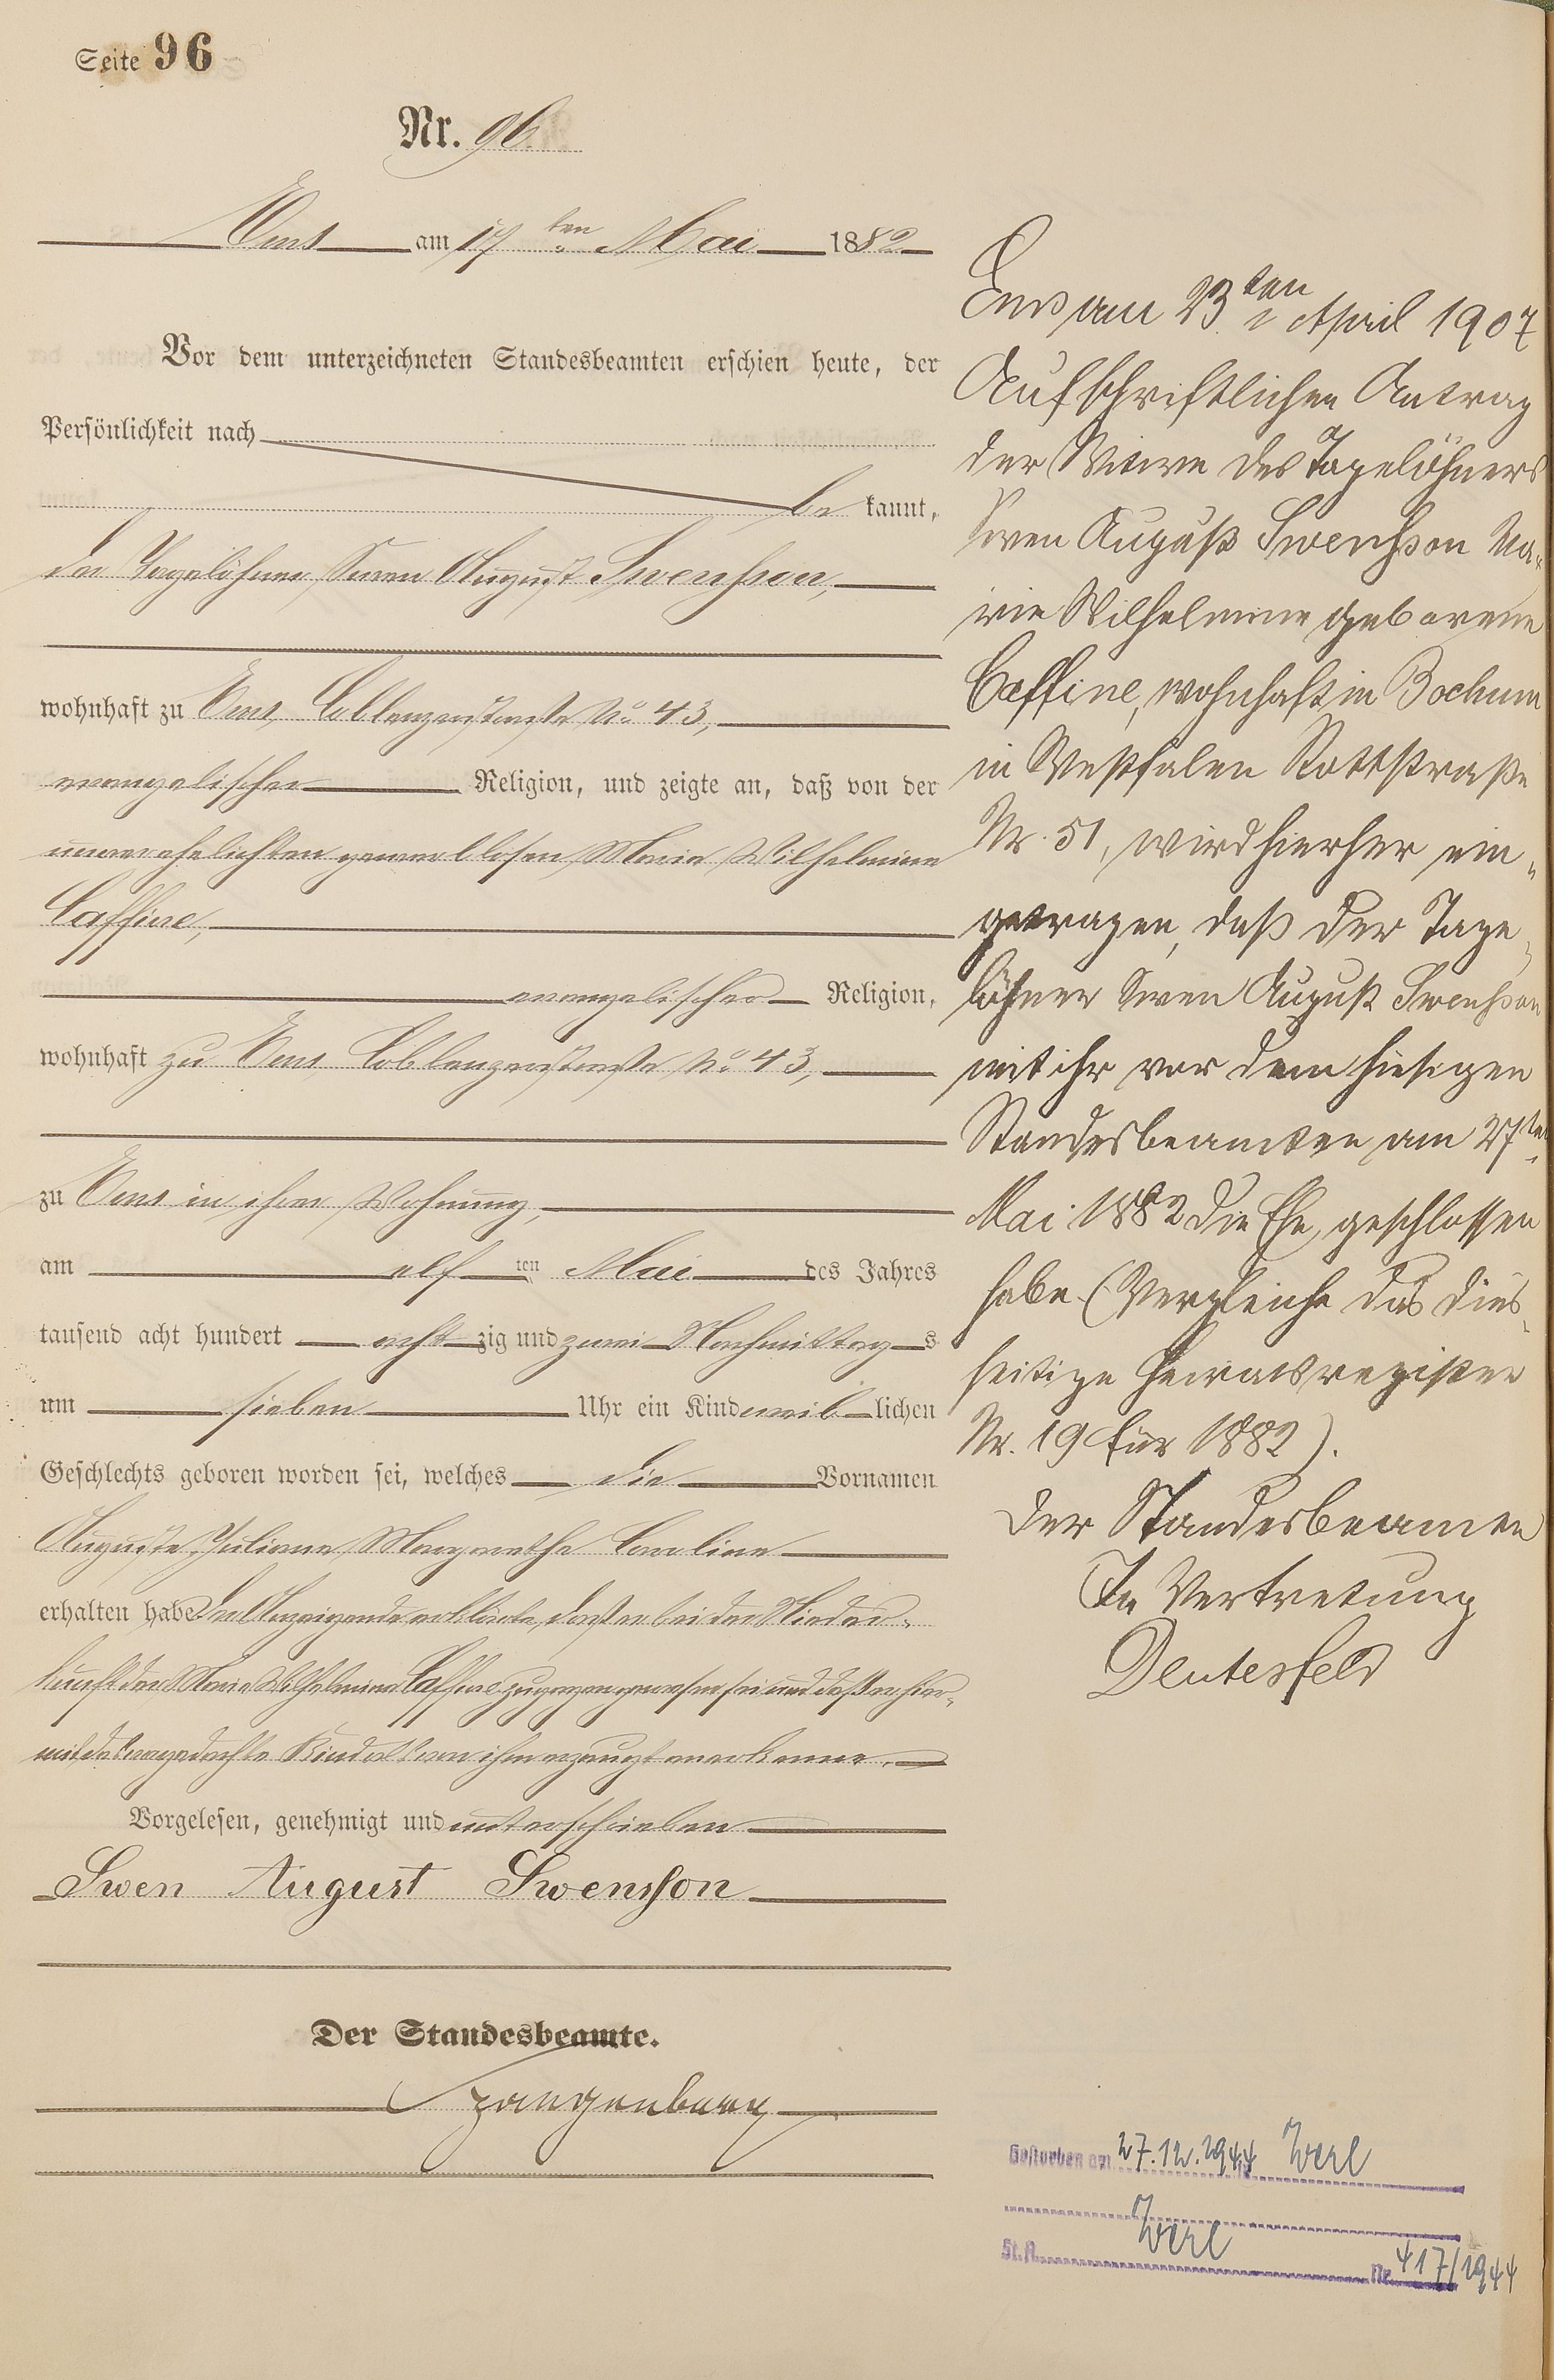 Seite 96
Nr. 96.
Ems am 17ten Mai 1882
Vor dem unterzeichneten Standesbeamten erschien heute, der
Persönlichkeit nach
be kannt,
der Tagelöhner Swen August Swensson,
wohnhaft zu Ems, Coblenzerstraße No. 43,
evangelischer Religion, und zeigte an, daß von der
unverehelichten gewerblosen Marie Wilhelmine
Caffine,
evangelischer Religion,
wohnhaft zu Ems, Coblenzerstraße No. 43,
zu Ems in ihrer Wohnung,
am elf ten Mai des Jahres
tausend acht hundert acht zig und zwei Nachmittag s
um sieben Uhr ein Kind weib lichen
Geschlechts geboren worden sei, welches die Vornamen
Auguste Juliane Margarethe Caroline
erhalten habe. Der Anzeigende erklärte, daß er bei der Nieder-
kunft der Marie Wilhelmine Caffine zugegen gewesen sei und daß er hier-
mit das vorgedachte Kind als von ihm erzeugt anerkenne.
Vorgelesen, genehmigt und unterschrieben
Swen August Swensson
Der Standesbeamte.
Spangenberg
Ems am 23ten April 1907
Auf schriftlichen Antrag
der Witwe des Tagelöhners
Swen August Swensson Ma-
rie Wilhelmine geborene
Caffine, wohnhaft in Bochum
in Westfalen Rottstraße
Nr. 51, wird hierher ein-
getragen, daß der Tage-
löhner Swen August Swensson
mit ihr vor dem hiesigen
Standesbeamten am 27ten
Mai 1882 die Ehe geschlossen
habe. (Vergleiche das dies-
seitige Heiratsregister
Nr. 19 für 1882).
Der Standesbeamte
In Vertretung
Deutesfeld
Gestorben am 27.12.1944 Werl
St.A. Werl Nr. 417/1944